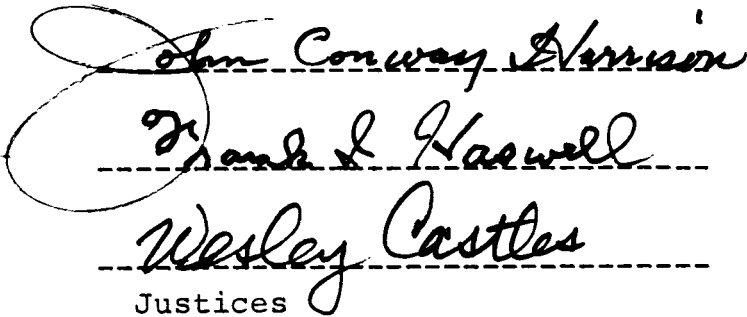 John Conway Harrison
Frank I Haswell
Wesley Castles
Justices